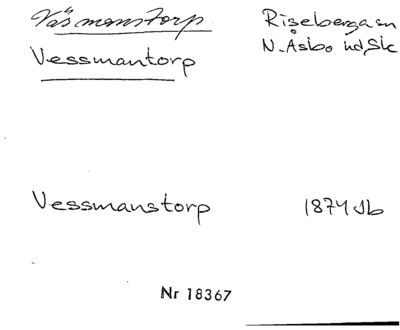 Väsmanstorp
Riseberga sn
Vessmantorp
N. Åsbo hd, Sk
Vessmanstorp
1874 Jb
Nr 18367